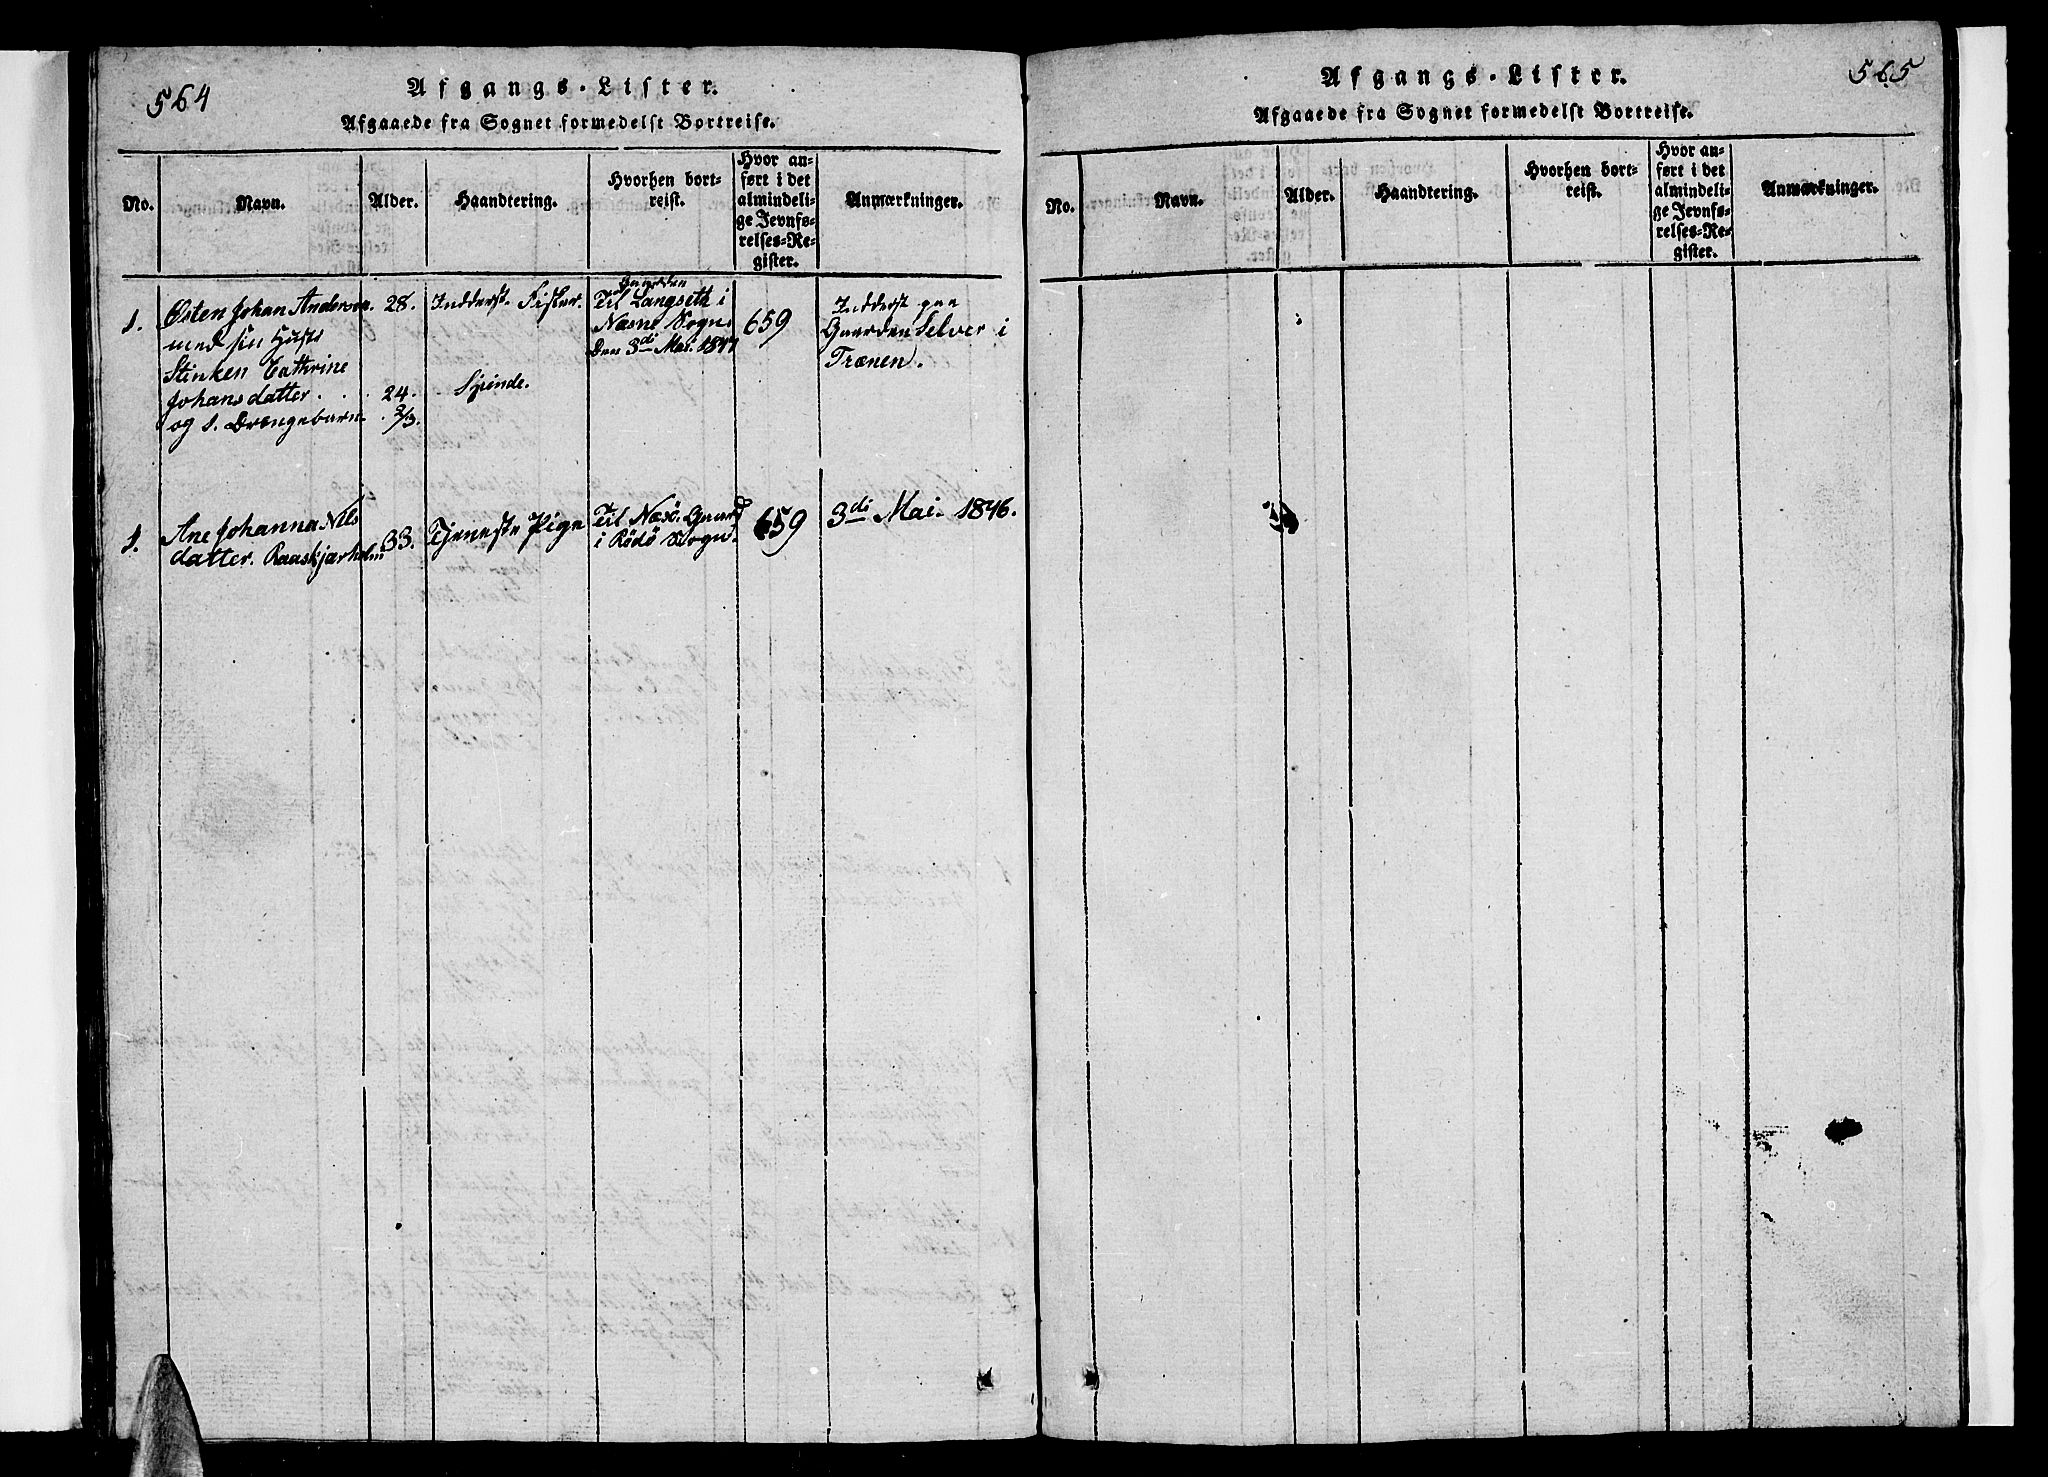 564
Afgangs-Lister.
Afgaaede fra Sognet formedelst Bortreise.
No.
Navn.
Alder.
Haandtering.
Hvorhen bort-
reist.
Hvor an-
ført i det
almindeli-
ge Jevnfø-
relses-Re-
gister.
Anmærkninger.
1.
Østen Johan Anderson
med sin Huste
Stinken Cathrine
Johansdatter.
og 1. Drængebarn
28.
24.
2/3.
Indderst. Fisker.
Spinde.
Gaarden
Til Langseth i
Næsne Sogn
Den 3di Mai. 1847
659
Indderst paa
Gaarden Selver i
Trænen.
1.
Ane Johanna Nils
datter. Raaskjærholm
33.
Tjeneste Pige
Til Næsö. Gaard
i Rödö Sogn.
659
3di Mai. 1846.
565
Afgangs-Lister.
Afgaaede fra Sognet formedelst Bortreise.
No.
Navn.
Alder.
Haandtering.
Hvorhen bort-
reist.
Hvor an-
ført i det
almindeli-
ge Jevnfø-
relses-Re-
gister.
Anmærkninger.